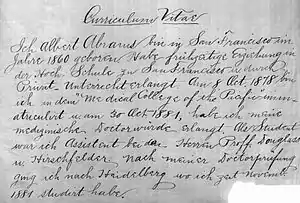 Curriculum Vitae
Ich Albert Abrams bin in San Francisco im
Jahre 1860 geboren. Habe frühzeitige Erziehung in
der Hoch. Schule zu San Francisco u durch
Privat. Unterricht erlangt. Am 8 Oct. 1878 bin
ich in dem "Medical College of the Pacific" imm-
atriculirt u am 30 Oct. 1881, habe ich meine
medizinische Doctorwürde erlangt. Als Student
war ich Assistent bei den Herren Proff Douglass
u Hirschfelder nach meiner Doctorprüfung
ging ich nach Heidelberg wo ich seit Novemb.
1881 studirt habe.